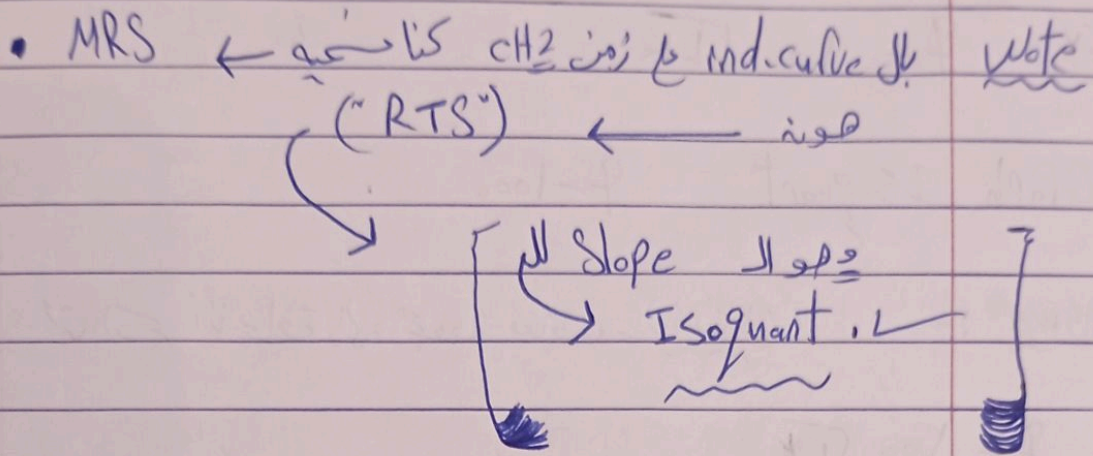 Note بال ind.curve ع زمن CH2 كنا نسميه ← MRS •
هونه ← ("RTS")
وهو ال Slope لل
Isoquant.